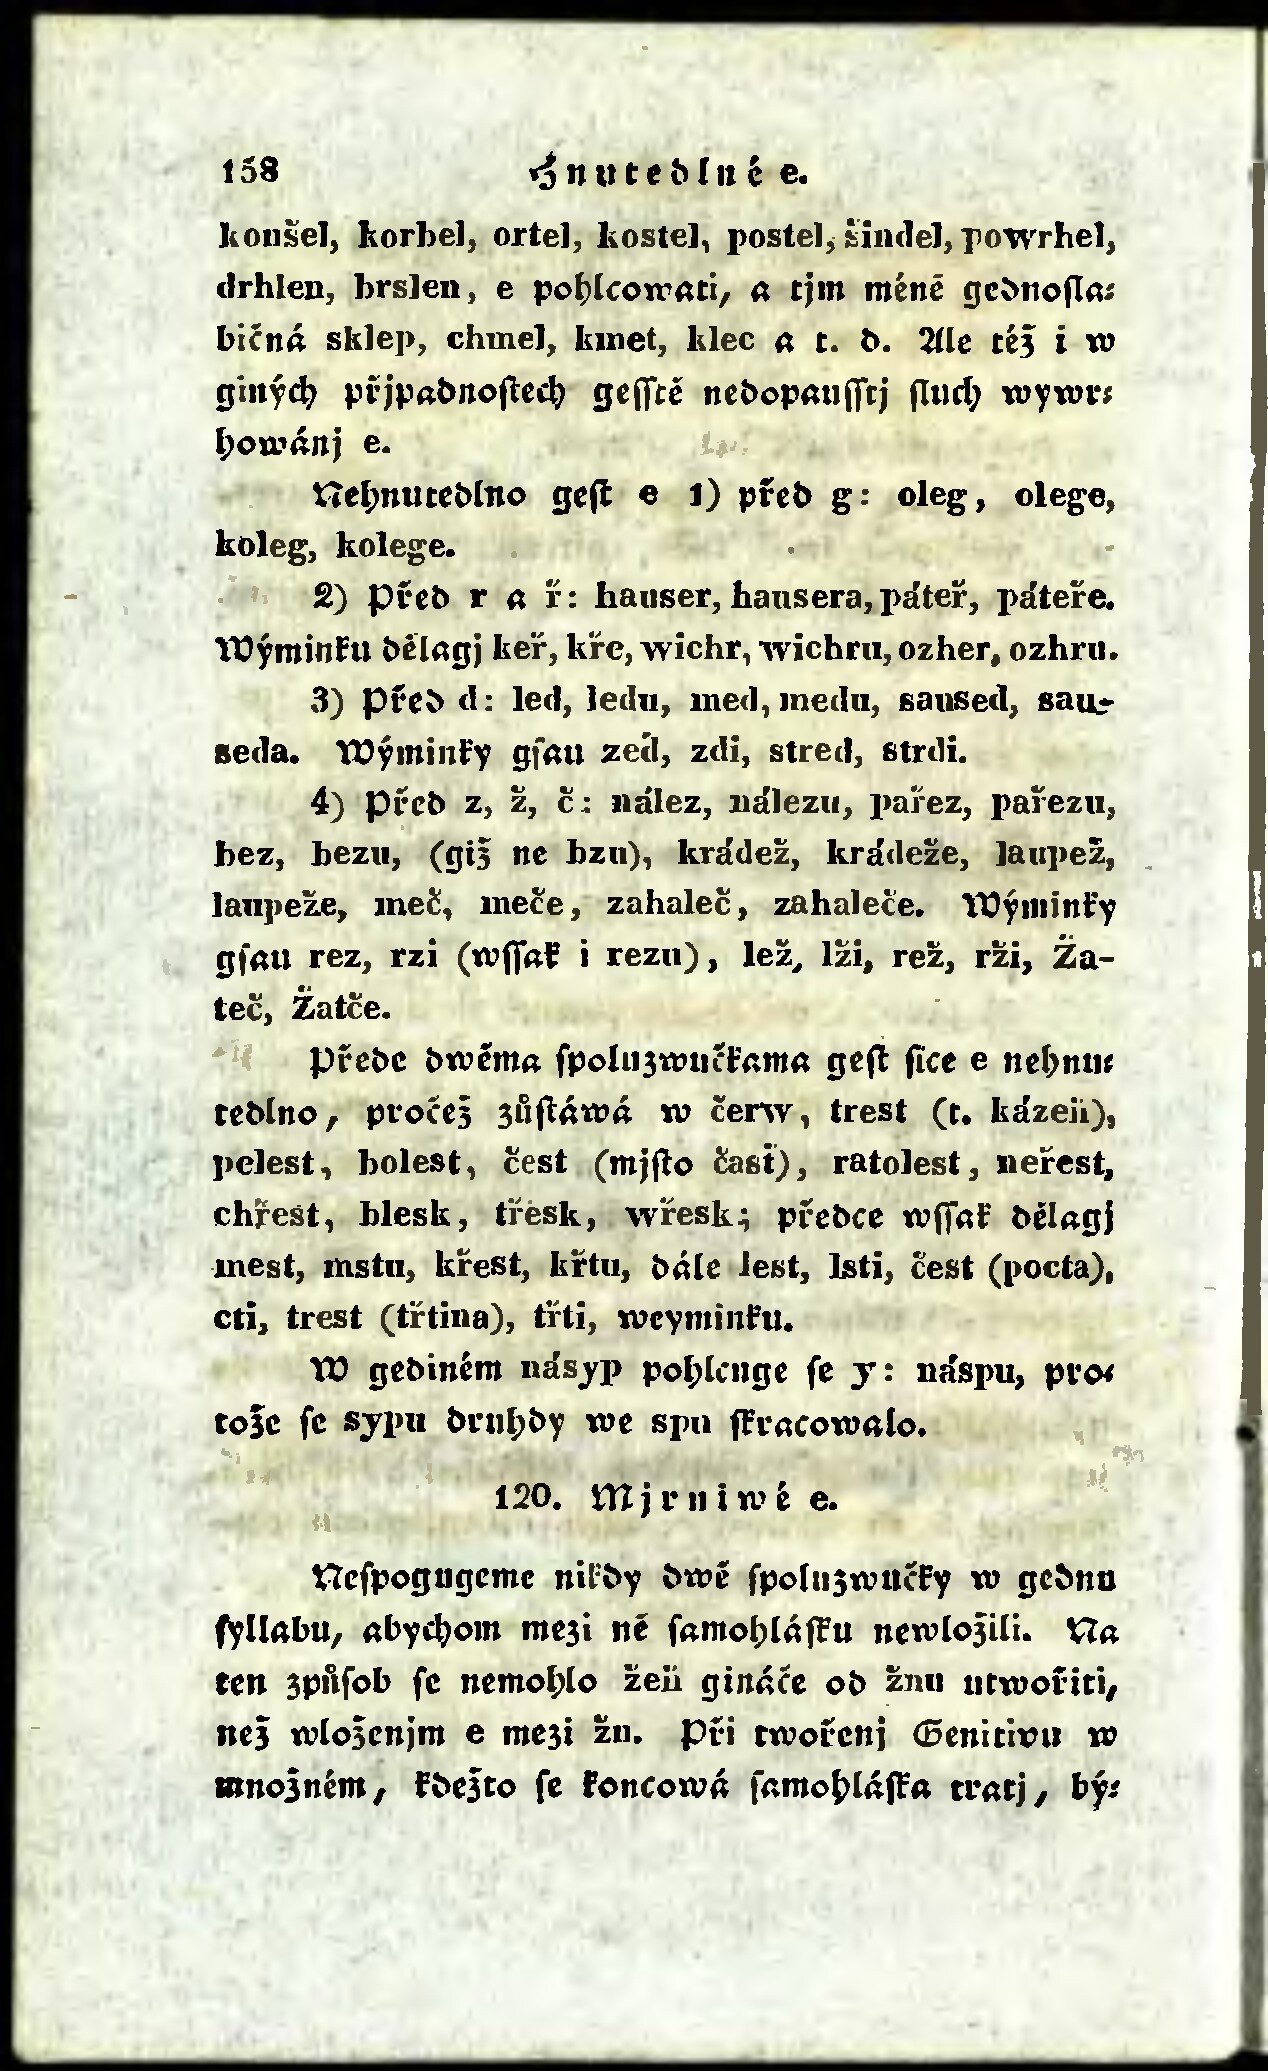 158 Hnutedlné e.
koušel, korbel, ortel, kostel, postel, šindel, powrhel,
drhlen, brslen, e pohlcowati, a tjm méně gednosla-
bičná sklep, chmel, kmet, klec a t. d. Ale též i w
giných přjpadnostech gessтě nedopausstj sluch wywr-
howánj e.
Nehnutedlno gest e 1) před g: oleg, olege,
koleg, kolege.
2) Před r a ř: hauser, hausera, páteř, páteře.
Wýminku dělagj keř, kře, wichr, wichru, ozher, ozhru.
3) Před d: led, ledu, med, medu, saused, sau-
seda. Wýminky gsau zeď, zdi, stred, strdi.
4) Před z, ž, č: nález, nálezu, pařez, pařezu,
bez, bezu, (giž ne bzu), krádež, krádeže, laupež,
laupeže, meč, meče, zahaleč, zahaleče. Wýminky
gsau rez, rzi (wssak i rezu), lež, lži, rež, rži, Ža-
teč, Žatče.
Přede dwěma spoluzwučkama gest sice e nehnu-
tedlno, pročež zůstáwá w čerw, trest (t. kázeň),
pelest, bolest, čest (mjsto časť), ratolest, neřest,
chřest, blesk, třesk, wřesk; předce wssak dělagj
mest, mstu, křest, křtu, dále lest, lsti, čest (pocta),
cti, trest (třtina), třti, weyminku.
W gediném násyp pohlcuge se y: náspu, pro-
tože se sypu druhdy we spu skracowalo.
120. Mjrniwé e.
Nespogugeme nikdy dwě spoluzwučky w gednu
syllabu, abychom mezi ně samohlásku newložili. Na
ten způsob se nemohlo žeň gináče od žnu utwořiti,
než wloženjm e mezi žn. Při twořenj Genitivu w
množném, kdežto se koncowá samohláska tratj, bý-